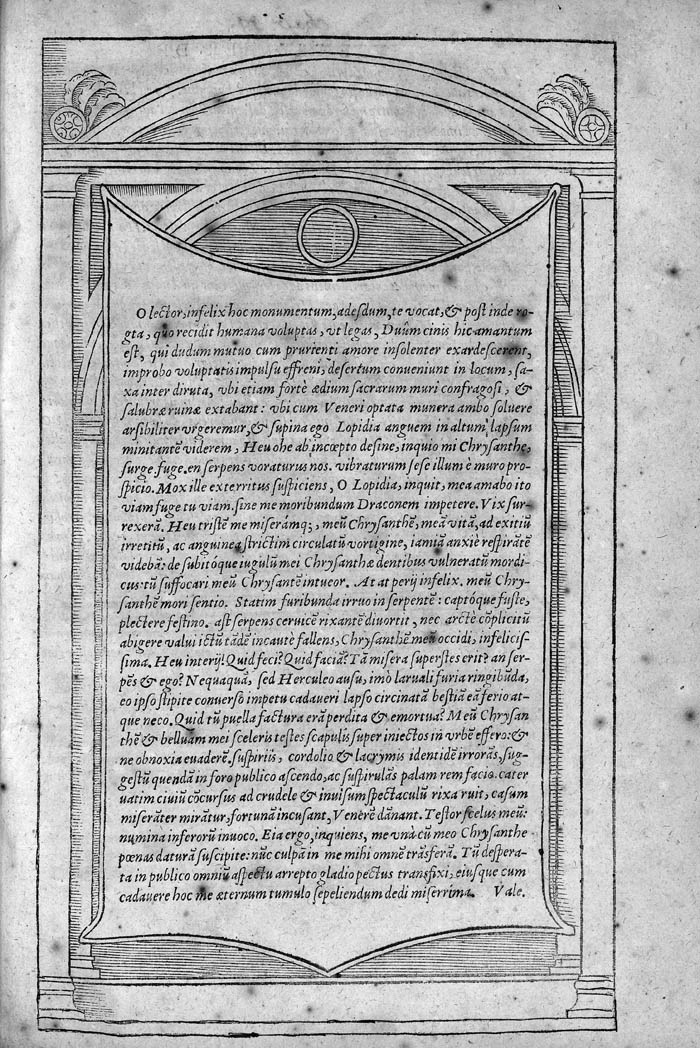 O lector, infelix hoc monumentum, adesdum, te vocat, & post inde ro-
gta, quo recidit humana voluptas, vt legas, Duûm cinis hic amantum
est, qui dudum mutuo cum prurienti amore insolenter exardescerent,
improbo voluptatis impulsu effreni, desertum conueniunt in locum, sa-
xa inter diruta, vbi etiam fortè ædium sacrarum muri confragosi, &
salubræ ruinæ extabant: vbi cum Veneri optata munera ambo soluere
arsibiliter vrgeremur, & supina ego Lopidia anguem in altum lapsum
minitantẽ viderem, Heu ohe ab incœpto desine, inquio mi Chrysanthe,
surge. fuge. en serpens voraturus nos. vibraturum sese illum è muro pro-
spicio. Mox ille exterritus suspiciens, O Lopidia, inquit, mea amabo ito
viam fuge tu viam. sine me moribundum Draconem impetere. Vix sur-
rexerã. Heu tristẽ me miserámq;, meũ Chrysanthẽ, meã vitã, ad exitiũ
irretitũ, ac anguinea strictim circulatũ vortigine, iamiã anxiè respirãtẽ
videbã: de subitóque iugulũ mei Chrysanthæ dentibus vulneratũ mordi-
cus: tũ suffocari meũ Chrysantẽ intueor. At at perij infelix. meũ Chry-
santhẽ mori sentio. Statim furibunda irruo in serpentẽ: captóque fuste,
plectere festino. ast serpens ceruicẽ rixantẽ diuortit, nec arctè cõplicitũ
abigere valui ictũ tãdẽ incautè fallens, Chrysanthẽ meũ occidi, infelicis-
sima. Heu interij! Quid feci? Quid faciã? Tã misera superstes erit? an ser-
pẽs & ego? Nequaquã, sed Herculeo ausu, imò laruali furia ringibũda,
eo ipso stipite conuerso impetu cadaueri lapso circinatã bestiã eã ferio at-
que neco. Quid tũ puella factura erã perdita & emortua? Meũ Chrysan
thẽ & belluam mei sceleris testes scapulis super iniectos in vrbẽ effero: &
ne obnoxia euaderẽ. suspiriis, cordolio & lacrymis identidẽ irrorãs, sug-
gestũ quendã in foro publico ascendo, ac suspirulãs palam rem facio. cater
uatim ciuiũ cõcursus ad crudele & inuisum spectaculũ rixa ruit, casum
miserãter mirãtur, fortunã incusant, Venerẽ dãnant. Testor scelus meũ:
numina inferorũ inuoco. Eia ergo, inquiens, me vnà cũ meo Chrysanthe
pœnas daturã suscipite: nũc culpã in me mihi omnẽ trãsferã. Tũ despera-
ta in publico omniũ aspectu arrepto gladio pectus transfixi, eiusque cum
cadauere hoc me æternum tumulo sepeliendum dedi miserrima. Vale.